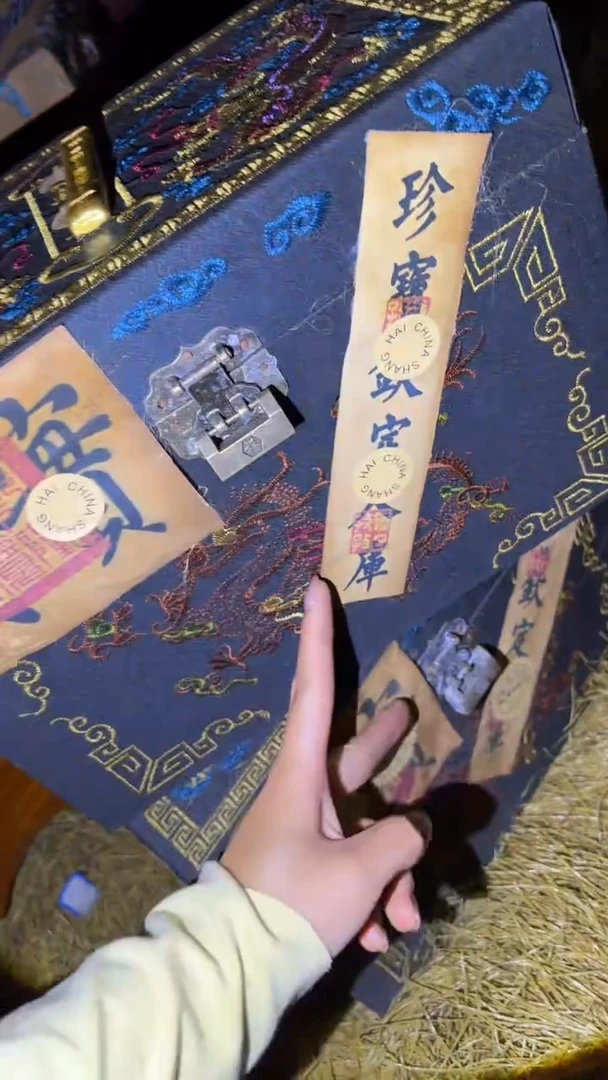 珍
寶
SHANG HAI CHINA
欽
定
SHANG HAI CHINA
金
庫
寶
SHANG HAI CHINA
欽
定
庫